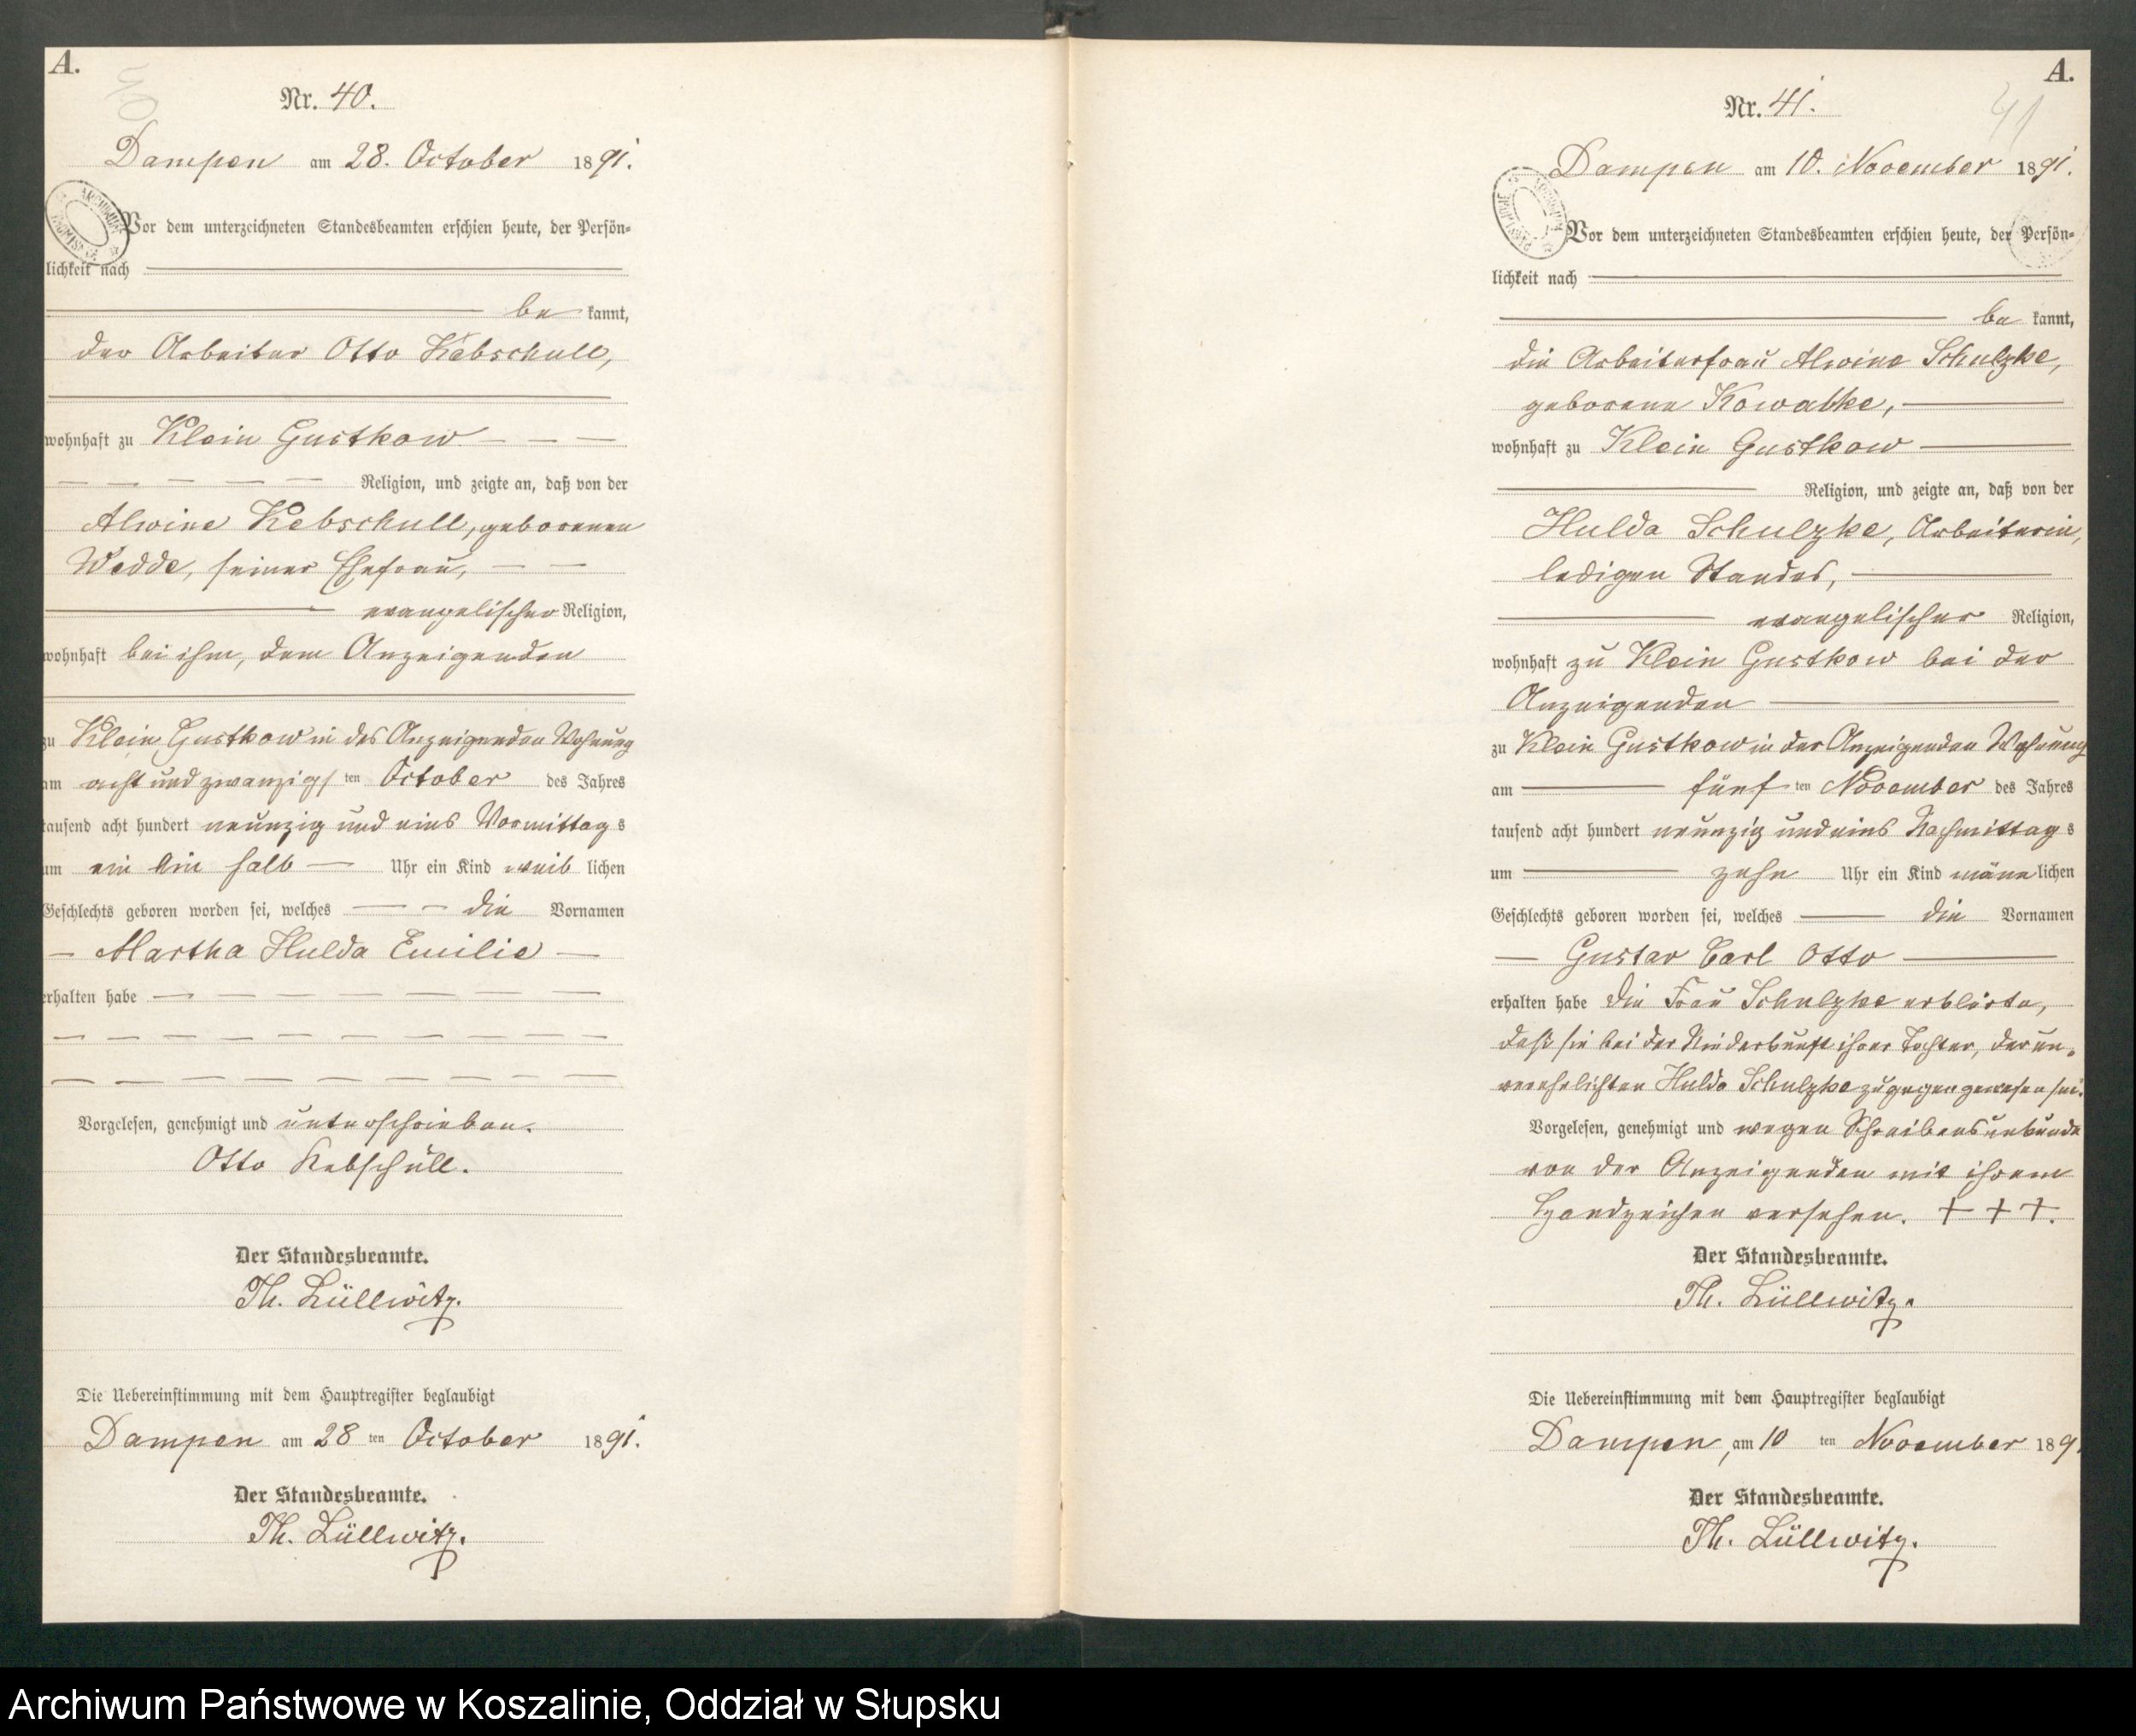 A.
40
Nr. 40.
Dampen am 28. October 1891.
Vor dem unterzeichneten Standesbeamten erschien heute, der Persön-
lichkeit nach
be kannt,
der Arbeiter Otto Kebschull,
wohnhaft zu Klein Gustkow
Religion, und zeigte an, daß von der
Alwine Kebschull, geborenen
Wedde, seiner Ehefrau,
evangelischer Religion,
wohnhaft bei ihm, dem Anzeigenden
zu Klein Gustkow in des Anzeigenden Wohnung
am acht und zwanzigs ten October des Jahres
tausend acht hundert neunzig und eins Vormittag s
um ein ein halb Uhr ein Kind weib lichen
Geschlechts geboren worden sei, welches die Vornamen
Martha Hulda Emilie
erhalten habe
Vorgelesen, genehmigt und unterschrieben.
Otto Kebschull.
Der Standesbeamte.
Th. Lüllwitz.
Die Uebereinstimmung mit dem Hauptregister beglaubigt
Dampen am 28 ten October 1891.
Der Standesbeamte.
Th. Lüllwitz.
A.
41
Nr. 41.
Dampen am 10. November 1891.
Vor dem unterzeichneten Standesbeamten erschien heute, der Persön-
lichkeit nach
be kannt,
die Arbeiterfrau Alwine Schulzke,
geborene Kowalke,
wohnhaft zu Klein Gustkow
Religion, und zeigte an, daß von der
Hulda Schulzke, Arbeiterin,
ledigen Standes,
evangelischer Religion,
wohnhaft zu Klein Gustkow bei der
Anzeigenden
zu Klein Gustkow in der Anzeigenden Wohnung
am fünf ten November des Jahres
tausend acht hundert neunzig und eins Nachmittag s
um zehn Uhr ein Kind männ lichen
Geschlechts geboren worden sei, welches die Vornamen
Gustav Carl Otto
erhalten habe die Frau Schulzke erklärte,
daß sie bei der Niederkunft ihrer Tochter, der un-
verehelichten Hulda Schulzke zugegen gewesen sei.
Vorgelesen, genehmigt und wegen Schreibensunkunde
von der Anzeigenden mit ihrem
Handzeichen versehen. + + +.
Der Standesbeamte.
Th. Lüllwitz.
Die Uebereinstimmung mit dem Hauptregister beglaubigt
Dampen, am 10 ten November 189
Der Standesbeamte.
Th. Lüllwitz.
Archiwum Państwowe w Koszalinie, Oddział w Słupsku